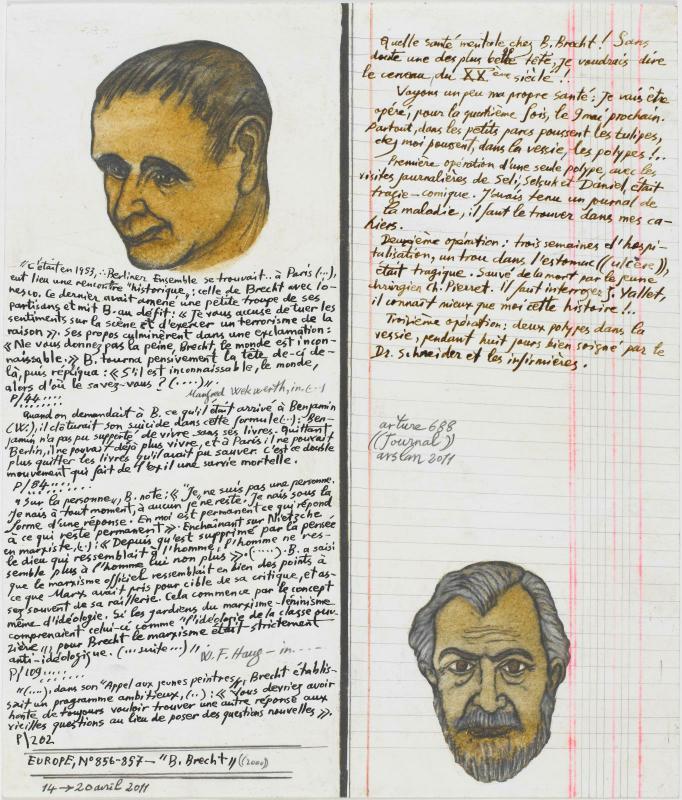 "C'était en 1953, ∴ Berliner Ensemble se trouvait.. à Paris (...),
eut lieu une rencontre "historique,,: celle de Brecht avec Io-
nesco. Ce dernier avait amené une petite troupe de ses
partisans et mit B. au défit: « Je vous accuse de tuer les
sentiments sur la scène et d'exercer un terrorisme de la
raison ». Ses propos culminèrent dans une exclamation:
« Ne vous donnez pas la peine, Brecht, le monde est incon-
naissable.» B. tourna pensivement la tête, de-ci de-
là, puis répliqua: « S'il est inconnaissable, le monde,
alors d'où le savez-vous ? (....)".
P/44.....
Manfred Wekwerth, in.(..)
Quand on demandait à B. ce qu'il était arrivé à Benjamin
(W.), il clôturait son suicide dans cette formule (..): "Ben-
jamin n'a pas pu supporter de vivre sans ses livres. Quittant
Berlin, il ne pouvait déjà plus vivre, et à Paris il ne pouvait
plus quitter les livres qu'il avait pu sauver. C'est ce double
mouvement qui fait de l'exil une survie mortelle.
P/84......
"Sur la personne,, B. note: « "Je, ne suis pas une personne.
Je nais à tout moment, à aucun je ne reste. Je nais sous la
forme d'une réponse. En moi est permanent ce qui répond
à ce qui reste permanent ». Enchaînant sur Nietzsche
en marxiste, (..) : « Depuis qu'est supprimé par la pensée
le dieu qui ressemblait à l'homme, l'homme ne res-
semble plus à l'homme lui non plus ». (.....). B. a saisi
que le marxisme officiel ressemblait en bien des points à
ce que Marx avait pris pour cible de sa critique, et as-
sez souvent de sa raillerie. Cela commence par le concept
même d'idéologie. Si les gardiens du marxisme-léninisme
comprenaient celui-ci comme "l'idéologie de la classe ouv-
rière,,, pour Brecht le marxisme était strictement
anti-idéologique. (...suite...)"
W. F. Haug - in.....
P/109.......
"(...), dans son "Appel aux jeunes peintres,, Brecht établis-
sait un programme ambitieux, (..) : « Vous devriez avoir
honte de toujours vouloir trouver une autre réponse aux
vieilles questions au lieu de poser des questions nouvelles ».
P/202
EUROPE, N° 856-857 — "B. Brecht,, ((2000))
14 → 20 avril 2011
Quelle santé mentale chez B. Brecht! Sans
doute une des plus belle tête, je voudrais dire
le cerveau du XXème siècle!!
Voyons un peu ma propre santé: Je vais être
opéré, pour la quatrième fois, le 9 mai prochain.
Partout, dans les petits parcs poussent les tulipes,
chez moi poussent, dans la vessie, les polypes!..
Première opération d'une seule polype, avec les
visites journalières de Seli, Selçuk et Daniel, était
tragie-comique. J'avais tenu un journal de
la maladie, il faut le trouver dans mes ca-
hiers.
Deuxième opération: trois semaines d'hospi-
talisation, un trou dans l'estomac ((ulcère)),
était tragique. Sauvé de la mort par le jeune
chirurgien Ch. Pierret. Il faut interroger J. Vallet,
il connaît mieux que moi cette histoire!..
Troisième opération: deux polypes dans la
vessie, pendant huit jours bien soigné par le
Dr. Schneider et les infirmières.
arture 688
((Journal))
arslan 2011